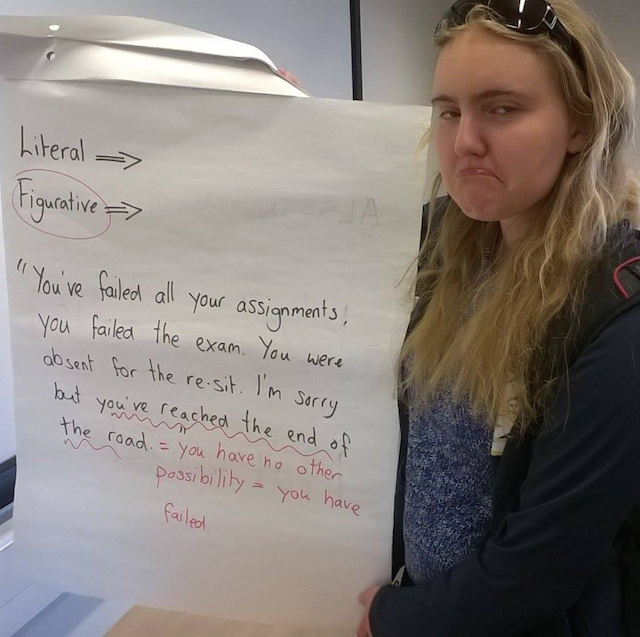 Literal ⇒
Figurative ⇒
"You've failed all your assignments,
you failed the exam. You were
absent for the re-sit. I'm sorry
but you've reached the end of
the road. = you have no other
possibility = you have
failed.